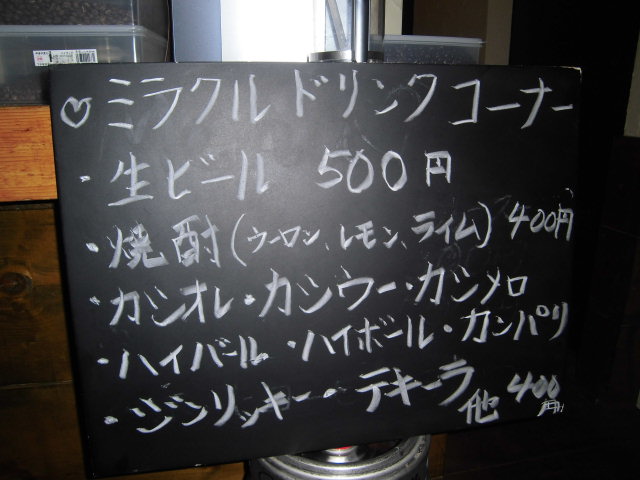 ♡ミラクルドリンクコーナー
・生ビール 500円
・焼酎(ウーロン、レモン、ライム) 400円
・カシオレ・カシウー・カシメロ
・ハイバール・ハイボール・カンパリ
・ジンリッキー・テキーラ他 400円